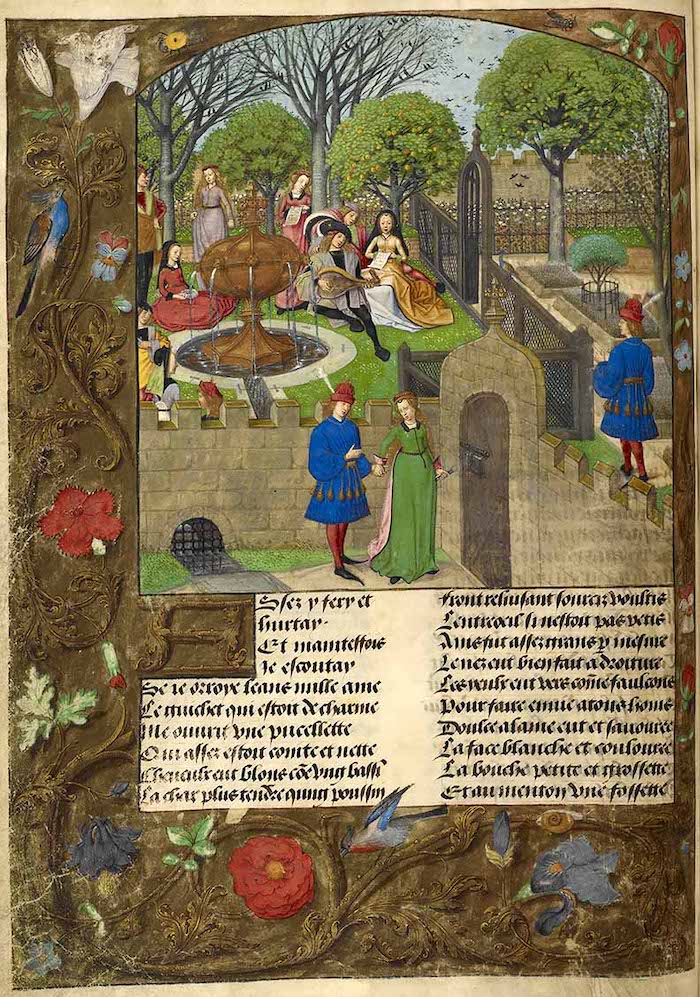 Assez y fery et
hurtay.
Et mainteffois
Je escoutay
Se ie orroye leans nulle ame
Le guichet qui estoit de charme
Me ouvrit une pucellette
Qui assez estoit cointe et nette
Cheveulx eut blons cõe ung bassĩ
La char plus tendre qung poussin
Front reluisant sourcız voultis
Lentreoeil si nestoit pas petis
Ains fut assez grans p mesure
Le nez eut bien fait a droiture
Les yeulx eut vers cõme faulcons
Pour faire envie a tous homs
Doulce alaine eut et savouree
La face blanche et coulouree
La bouche petite et grossette
Et au menton une fossette